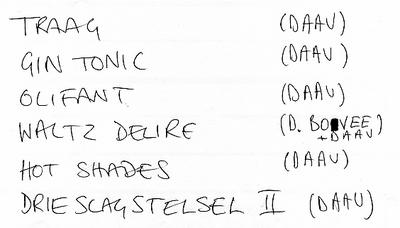 TRAAG (DAAU)
GIN TONIC (DAAU)
OLIFANT (DAAU)
WALTZ DELIRE (D. BOVEE)
+ DAAU
HOT SHADES (DAAU)
DRIESLAGSTELSEL II (DAAU)